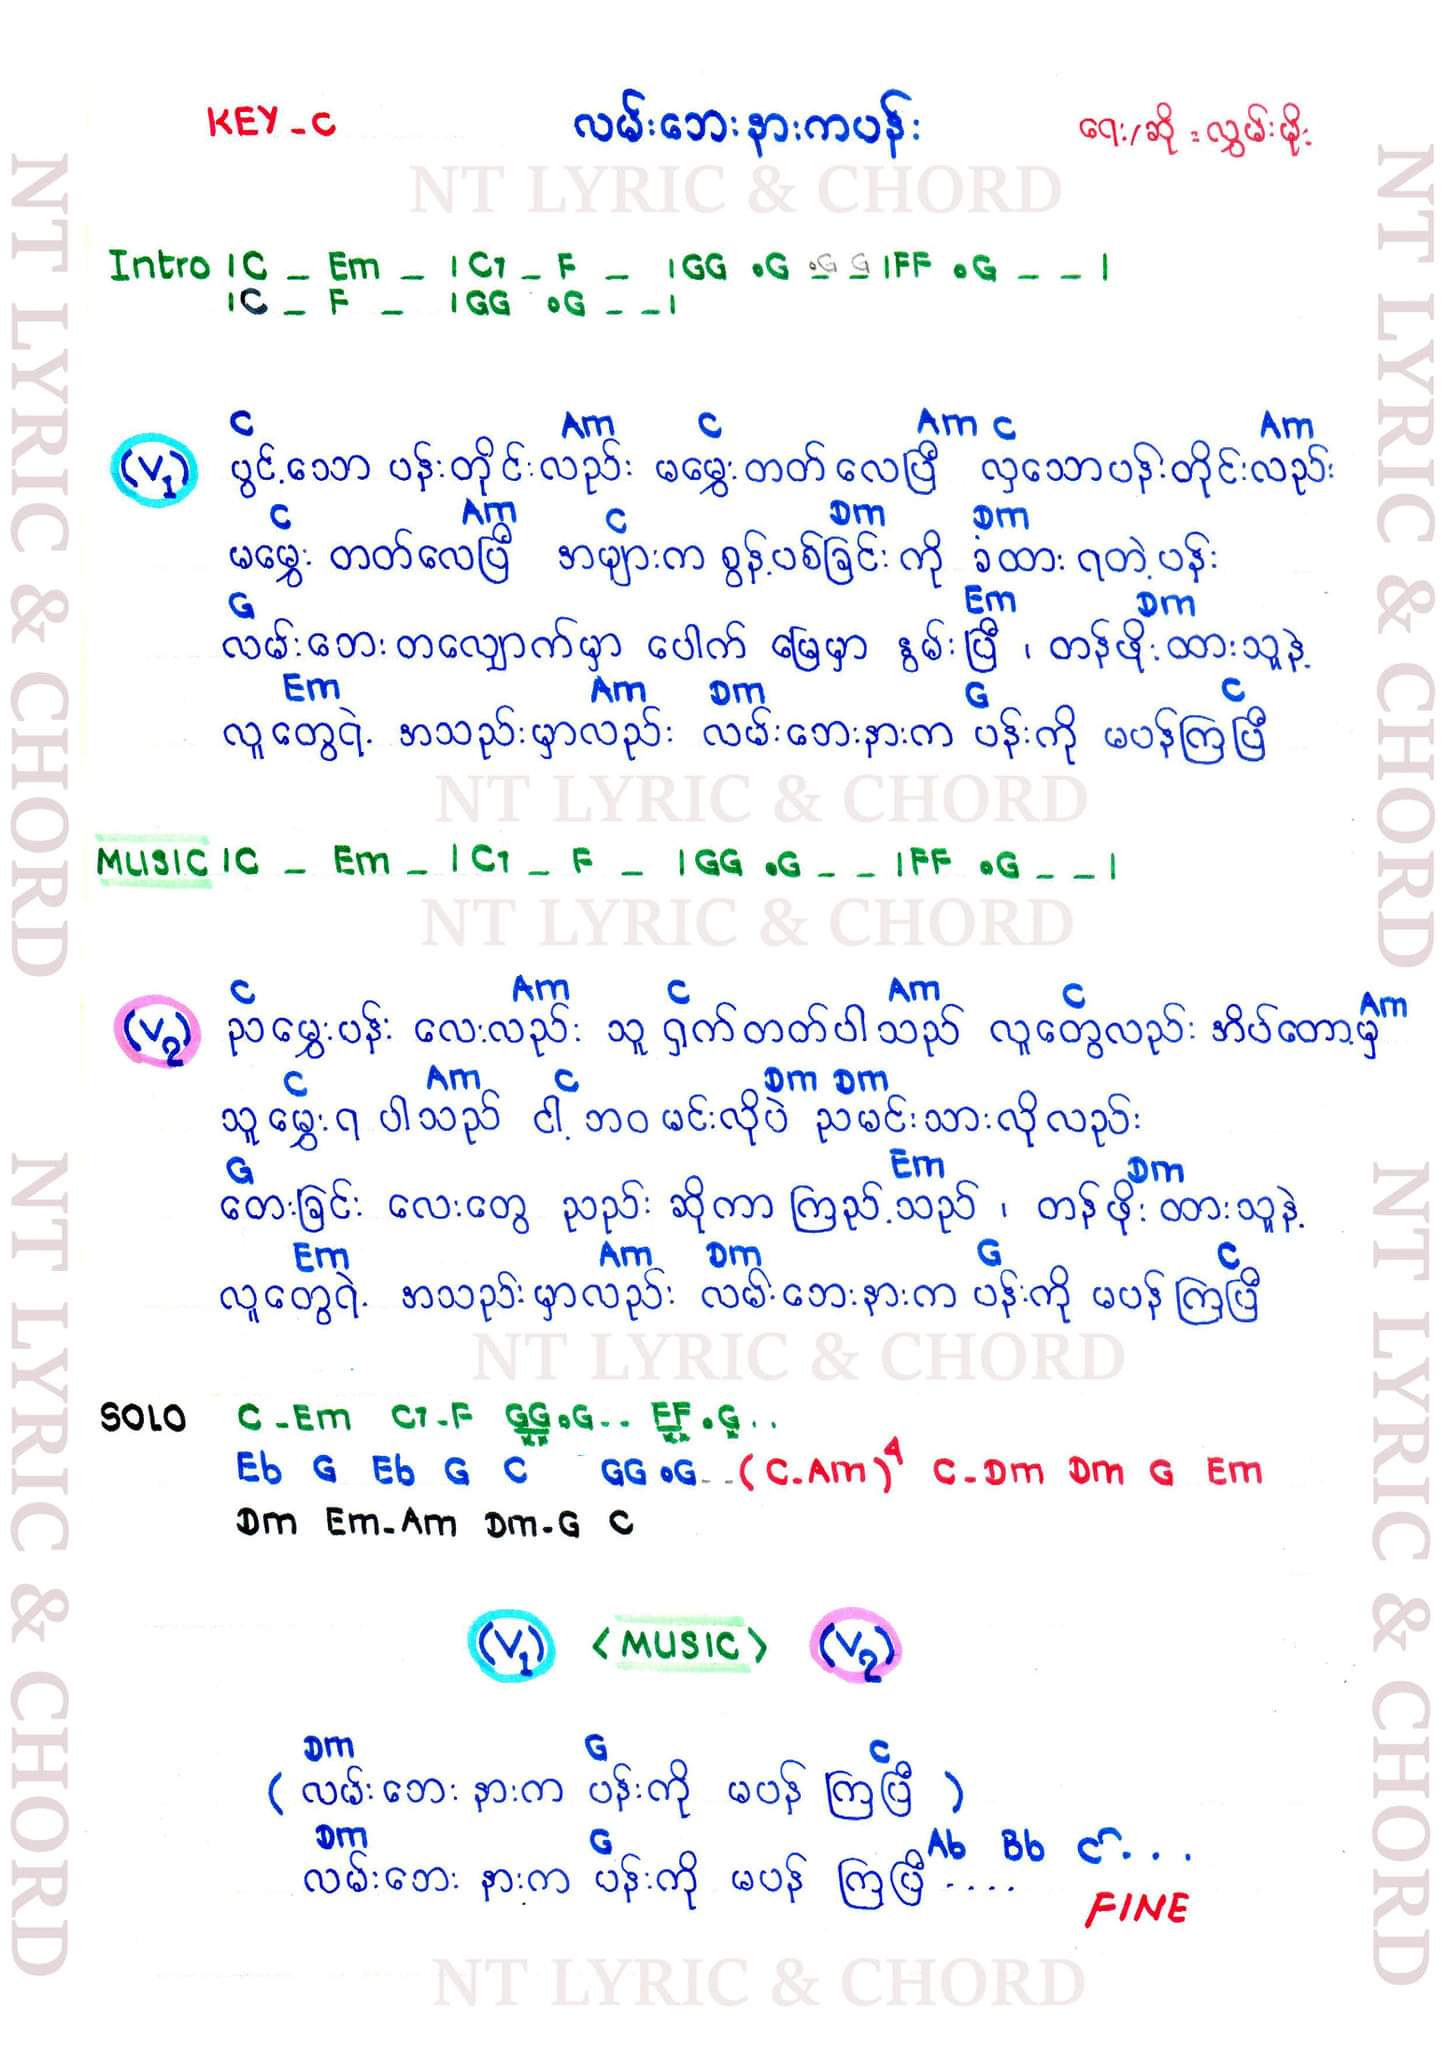 KEY - C လမ်းဘေးနားကပန်း ရေး/ဆို = လွှမ်းမိုး
NT LYRIC & CHORD
Intro | C _ Em _ | C7 _ F _ | GG .G .G _ G _ | FF .G _ _ |
| C _ F _ | GG .G _ _ |
C Am C Am C Am
(V1) ပွင့်သော ပန်းတိုင်းလည်း မမွှေးတတ်လေပြီ လှသောပန်းတိုင်းလည်း
C Am C Dm Dm
မမွှေး တတ်လေပြီ အများက စွန့်ပစ်ခြင်းကို ခံထားရတဲ့ပန်း
G Em Dm
လမ်းဘေးတလျှောက်မှာ ပေါက် မြေမှာ နွမ်းပြီ ၊ တန်ဖိုးထားသူနဲ့
Em Am Dm G C
လူတွေရဲ့ အသည်းမှာလည်း လမ်းဘေးနားက ပန်းကို မပန်ကြပြီ
NT LYRIC & CHORD
MUSIC | C _ Em _ | C7 _ F _ | GG .G _ _ | FF .G _ _ |
NT LYRIC & CHORD
C Am C Am C Am
(V2) ညမွှေးပန်း လေးလည်း သူ ရှက်တတ်ပါသည် လူတွေလည်း အိပ်တော့မှ
C Am C Dm Dm
သူမွှေးရ ပါသည် ငါ့ ဘဝ မင်းလိုပဲ ညမင်းသားလိုလည်း
G Em Dm
တေးခြင်း လေးတွေ ညည်း ဆိုကာ ကြည့်သည် ၊ တန်ဖိုးထားသူနဲ့
Em Am Dm G C
လူတွေရဲ့ အသည်းမှာလည်း လမ်းဘေးနားက ပန်းကို မပန်ကြပြီ
NT LYRIC & CHORD
SOLO C - Em C7 - F GG.G.. FF.G..
Eb G Eb G C GG.G.. (C-Am)4 C-Dm Dm G Em
Dm Em-Am Dm-G C
(V1) <MUSIC> (V2)
Dm G C
( လမ်းဘေး နားက ပန်းကို မပန် ကြပြီ )
Dm G Ab Bb C...
လမ်းဘေး နားက ပန်းကို မပန် ကြပြီ ....
FINE
NT LYRIC & CHORD
NT LYRIC & CHORD
NT LYRIC & CHORD
NT LYRIC & CHORD
NT LYRIC & CHORD